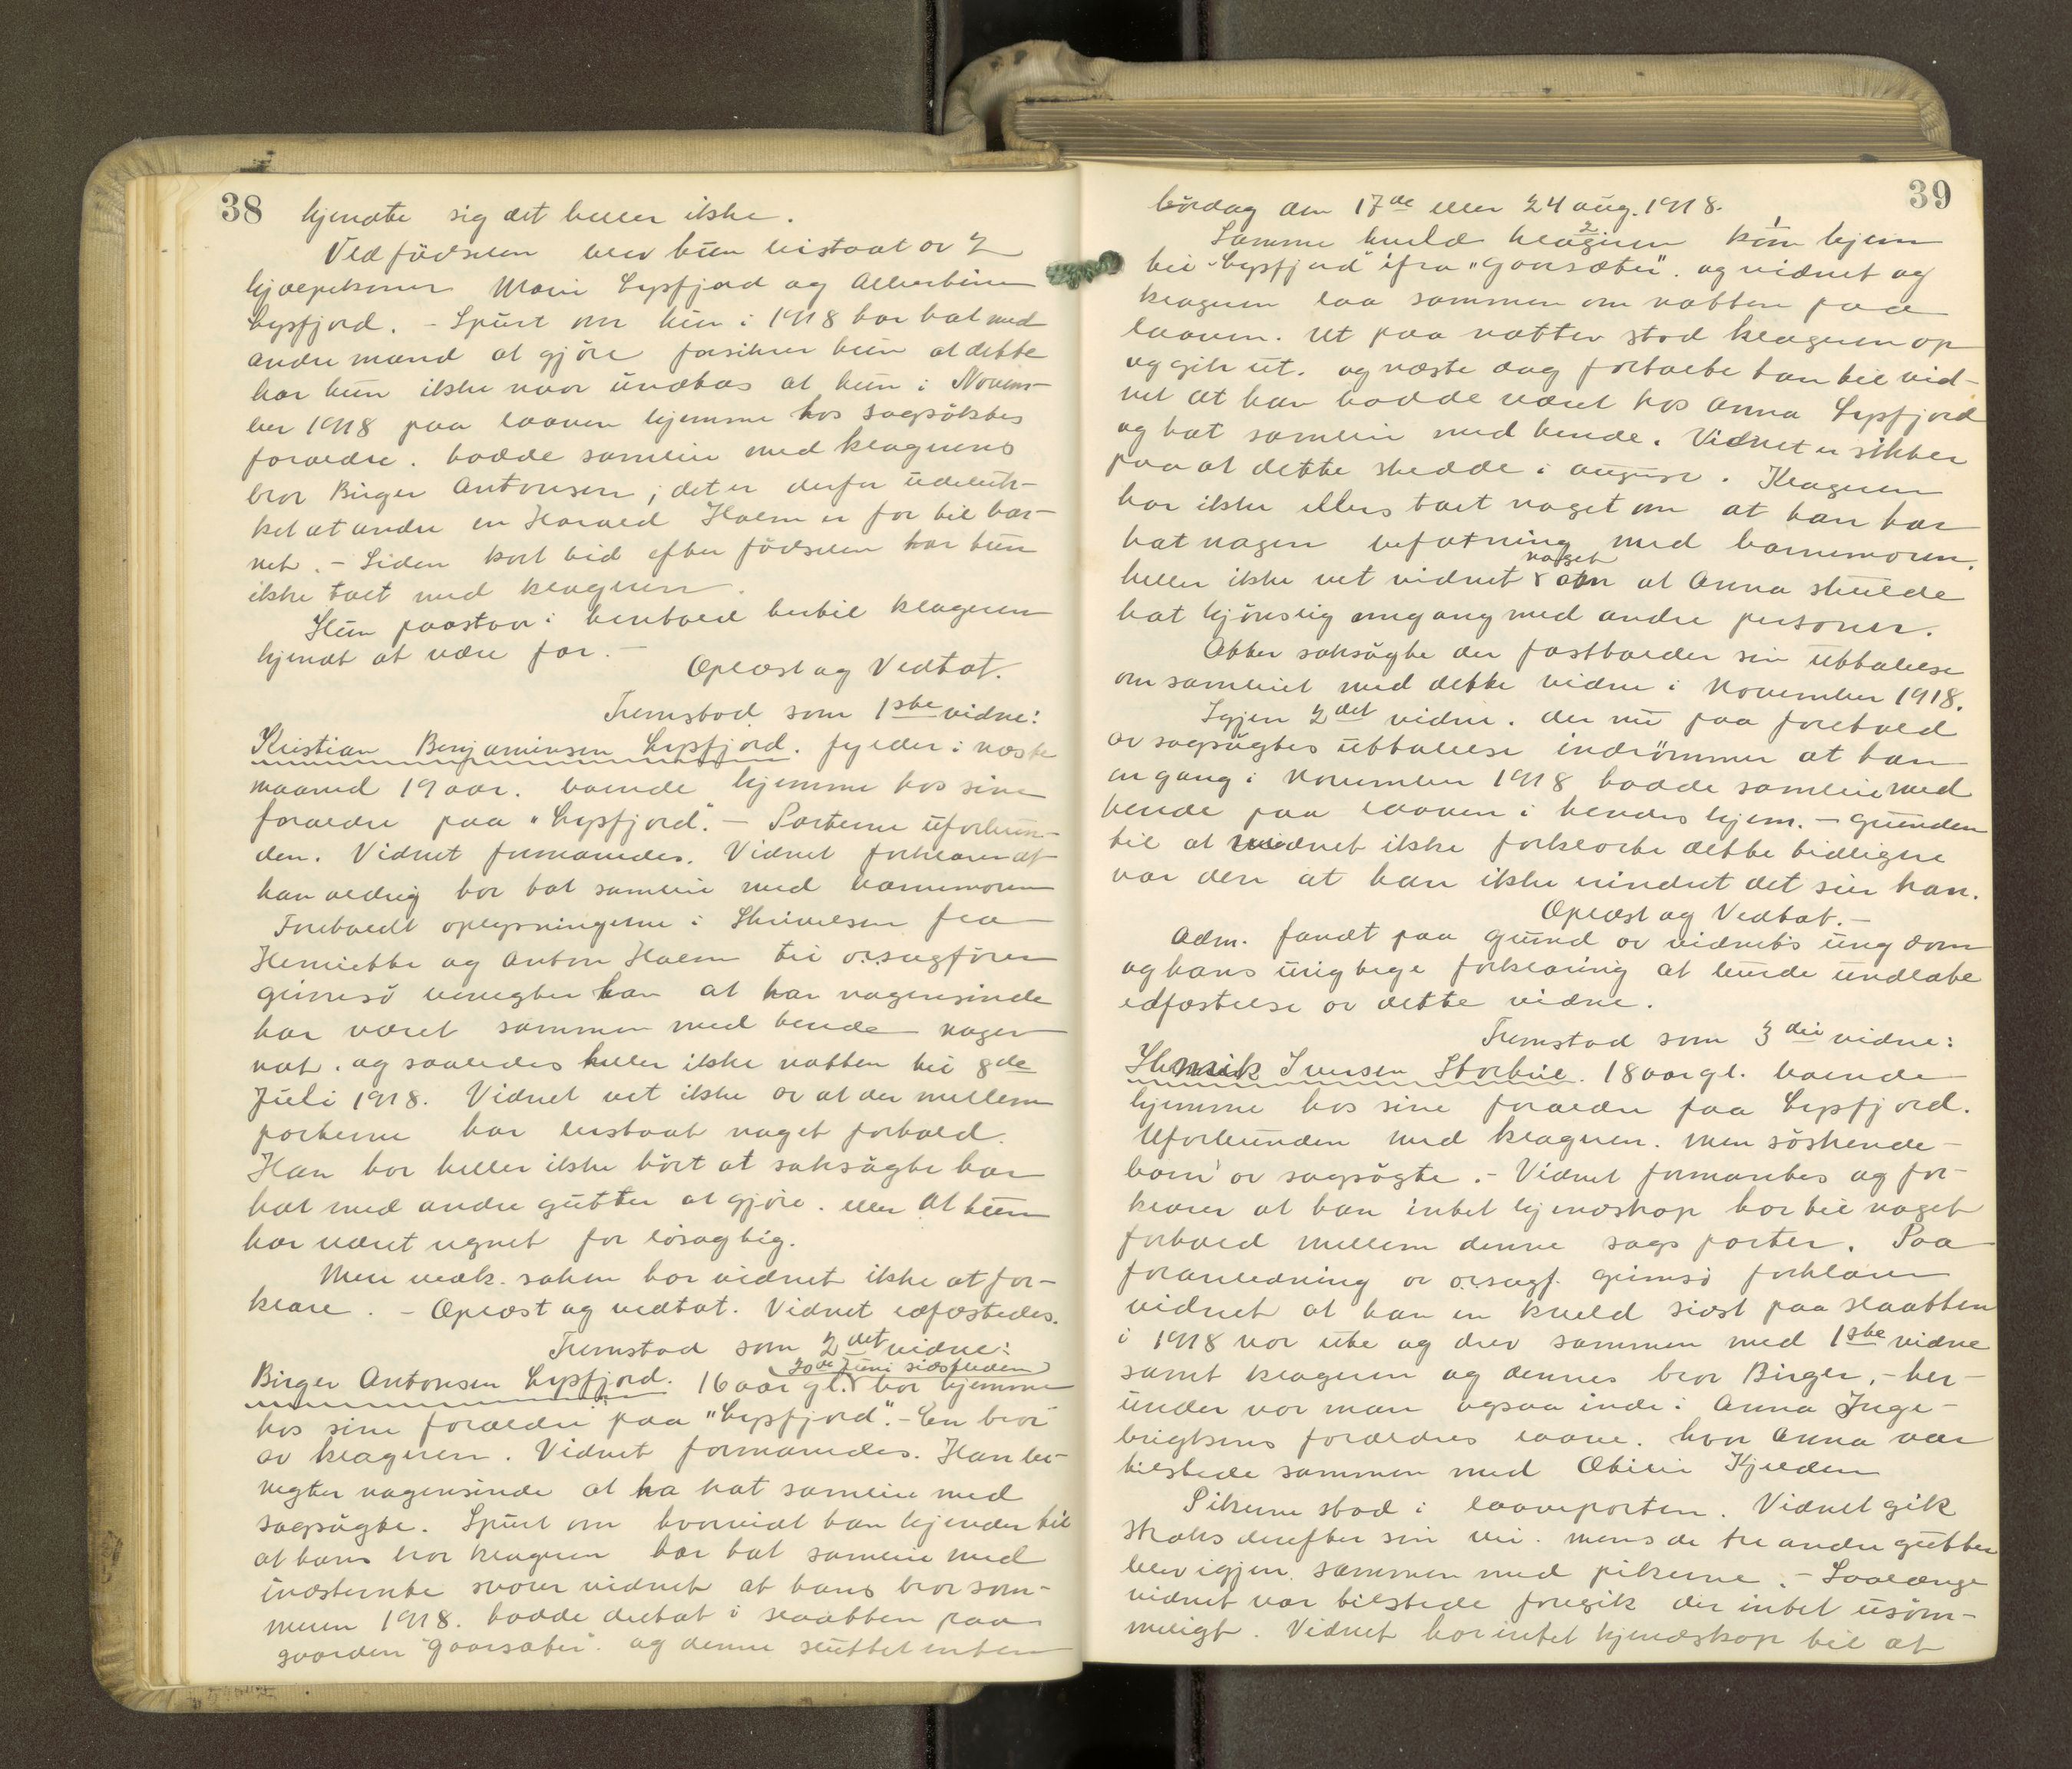 38
kjendte sig det heller ikke.
Ved fødselen blev hun bistaat av 2
hjælpekoner Marie Lysfjord og Albertine
Lysfjord. - Spurt om hun i 1918 har hat med
andre mænd at gjøre forsikrer hun at dette
har hun ikke naar undtas at hun i Novem-
ber 1918 paa laaven hjemme hos sagsøktes
forældre. hadde samleie med klagerens
bror Birger Antonsen; det er derfor udeluk-
ket at andre en Harald Holm er far til bar-
net. - Siden kort tid efter fødselen har hun
ikke talt med klageren.
Hun paastaar i henhold hertil klageren
kjendt at være far. -
Oplæst og Vedtat.
Fremstod som 1ste vidne:
Kristian Benjaminsen Lysfjord. fylder i næste
maaned 19 aar. boende hjemme hos sine
forældre paa "Lysfjord". - Parterne uforbun-
den. Vidnet formanedes. Vidnet forklarer at
han aldrig har hat samleie med barnemoren
Foreholdt oplysningerne i Skrivelsen fra
Henriette og Anton Holm til o.r.sagfører
Grimsø benegter han at han nogensinde
har været sammen med hende nogen
nat. og saaledes heller ikke natten til 8de
Juli 1918. Vidnet vet ikke av at der mellem
parterne har bestaat noget forhold.
Han har heller ikke hørt at saksøgte har
hat med andre gutter at gjøre. eller at hun
har været regnet for løsagtig.
Mere vedk. saken har vidnet ikke at for-
klare. - Oplæst og vedtat. Vidnet edfæstedes.
Fremstod som 2det vidne:
20de Juni sidstleden
Birger Antonsen Lysfjord. 16 aar gl. bor hjemme
hos sine forældre paa "Lysfjord". - En bror
av klageren. Vidnet formanedes. Han be-
negter nogensinde at ha hat samleie med
sagsøgte. Spurt om hvorvidt han kjender til
at hans bror klageren har hat samleie med
indstevnte svarer vidnet at hans bror som-
meren 1918. hadde deltat i slaatten paa
gaarden "Gaarsæter". og denne sluttet enten
39
lørdag den 17de eller 24 aug. 1918.
2 1
Samme kveld klageren kom hjem
til "Lysfjord" ifra "Gaarsæter". og vidnet og
klageren laa sammen om natten paa
laaven. Ut paa natten stod klageren op
og gik ut. og næste dag fortalte han til vid-
net at han hadde været hos Anna Lysfjord
og hat samleie med hende. Vidnet er sikker
paa at dette skedde i august. Klageren
har ikke ellers talt noget om at han har
hat nogen befatning med barnemoren.
noget
heller ikke vet vidnet om at Anna skulde
hat kjønslig omgang med andre personer.
Atter saksøgte der fastholder sin uttalelse
om samleiet med dette vidne i November 1918.
Igjen 2det vidne. der nu paa forehold
av sagsøgtes uttalelse indrømmer at han
en gang i November 1918 hadde samleie med
hende paa laaven i hendes hjem. - Grunden
til at vidnet ikke forklarte dette tidligere
var den at han ikke erindret det sier han.
Oplæst og Vedtat. -
Adm. fandt paa grund av vidnets ungdom
og hans urigtige forklaring at burde undlate
edfæstelse av dette vidne.
Fremstod som 3die vidne:
Henrik Iversen Storlid. 18 aar gl. boende
hjemme hos sine forældre paa Lysfjord.
Uforbunden med klageren. men søskende-
barn av sagsøgte. - Vidnet formantes og for-
klarer at han intet kjendskap har til noget
forhold mellem denne sags parter. Paa
foranledning av o.r.sagf. Grimsø forklarer
vidnet at han en kveld sidst paa slaatten
i 1918 var ute og drev sammen med 1ste vidne
samt klageren og dennes bror Birger, - her-
under var man ogsaa inde i Anna Inge-
brigtsens forældres laave. hvor Anna var
tilstede sammen med Otilie Kjelden
Pikerne stod i laaveporten. Vidnet gik
straks derefter sin vei. mens de tre andre gutter
blev igjen sammen med pikerne. - Saalænge
vidnet var tilstede foregik der intet usøm-
meligt. Vidnet har intet kjendskap til at